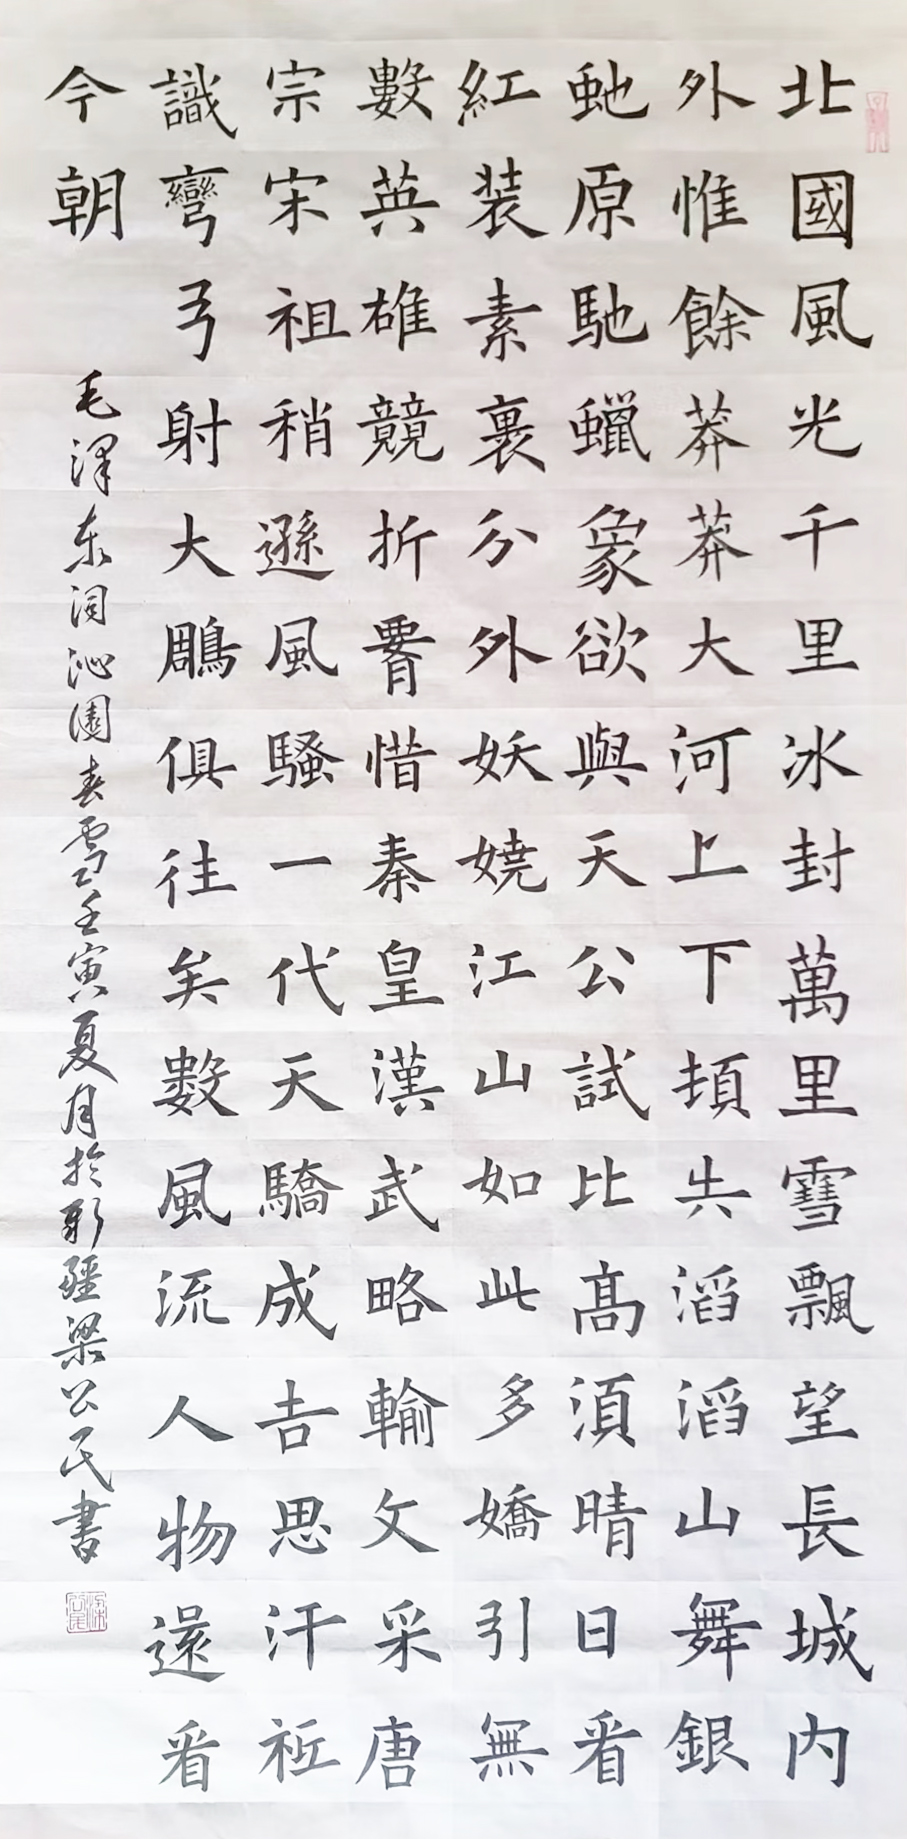 北國風光千里冰封萬里雪飄望長城内
外惟餘莽莽大河上下頓失滔滔山舞銀
虵原馳蠟象欲與天公試比高須晴日看
紅装素裹分外妖嬈江山如此多嬌引無
數英雄競折署惜秦皇漢武略輸文采唐
宗宋祖稍遜風騷一代天驕成吉思汗袛
識彎弓射大鵰俱往矣數風流人物還看
今朝
毛澤东词沁園春雪壬寅夏月於新疆梁公民書